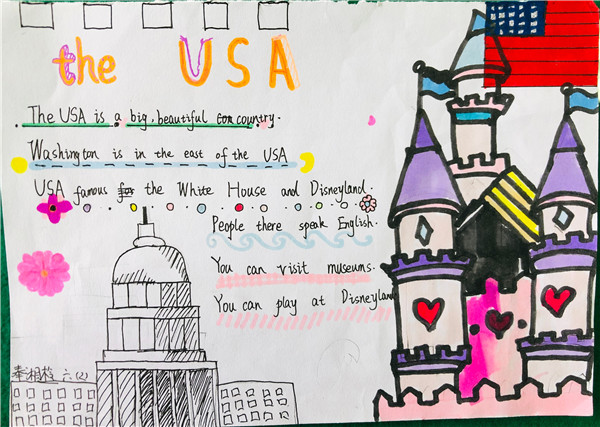 the USA
The USA is a big, beautiful country.
Washington is in the east of the USA
USA famous for the White House and Disneyland.
People there speak English.
You can visit museums.
You can play at Disneyland
六(2)